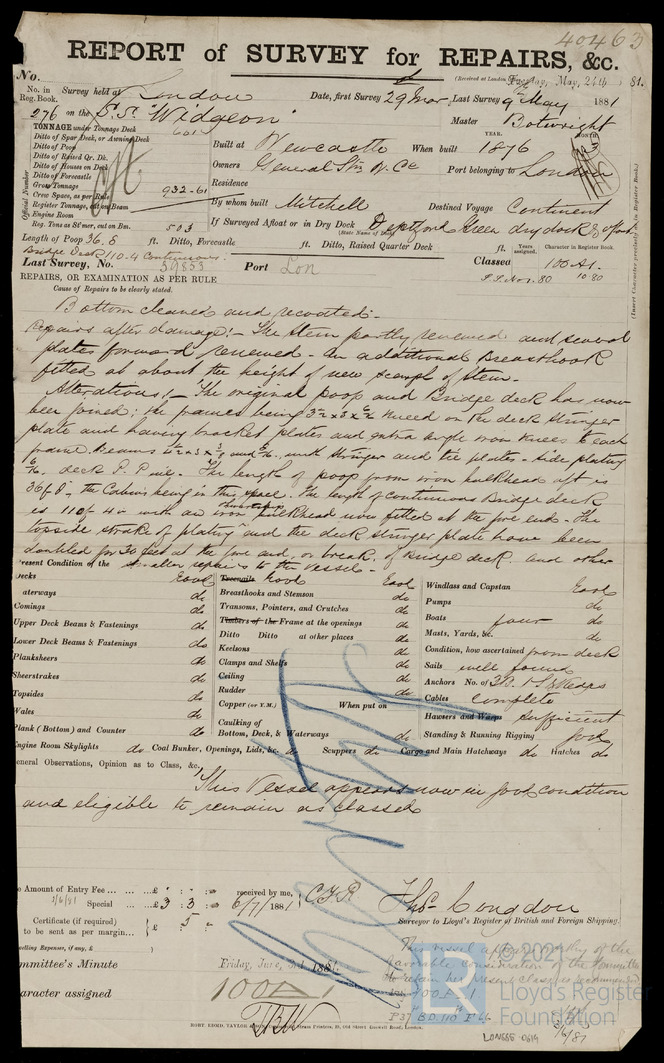 40463
REPORT of SURVEY for REPAIRS, &c.
No. (Received at London Tuesday, May, 24th 81.
No. in Reg. Book. Survey held at London Date, first Survey 29 Mar Last Survey 9th May 1881
276 on the S.S. "Widgeon" Master Botwright
TONNAGE under Tonnage Deck
Ditto of Spar Deck, or Awning Deck
Ditto of Poop
Ditto of Raised Qr. Dk.
Ditto of Houses on Deck
Ditto of Forecastle
Gross Tonnage 932.61
Crew Space, as per Rule
Register Tonnage, cut on Beam
Engine Room
Reg. Tons as St'mer, cut on Bm. 503
Official Number
Built at Newcastle When built YEAR. 1876 MONTH
Owners General Stm N. Co Port belonging to London
Residence
By whom built Mitchell Destined Voyage Continent
If Surveyed Afloat or in Dry Dock Deptford Green dry dock & afloat
(State Name of Dock.)
Length of Poop 36.8 ft. Ditto, Forecastle ft. Ditto, Raised Quarter Deck ft.
Bridge Deck 110.4 Continuous
Last Survey, No. 39853 Port Lon Classed Years assigned. Character in Register Book.
100 A1.
10.80
S.S. Nov. 80
(Insert Character precisely as in Register Book.)
REPAIRS, OR EXAMINATION AS PER RULE
Cause of Repairs to be clearly stated.
Bottom cleaned and recoated.-
Repairs after damage:- The stem partly renewed and several
plates forward renewed - An additional Breasthook
fitted at about the height of new scarph of Stem.
Alterations:- The original poop and Bridge deck has now
been joined; the frames being 3½ x 3 x 6/16 kneed on the deck stringer
plate and having bracket plates and extra angle iron knees to each
frame. Beams with stringer and tie plates - side plating
6/16. deck P. Pine. The length of poop from iron bulkhead aft is
36ft 8 - the Cabins being in this space. The length of continuous Bridge deck
is 110ft 4in with an iron bulkhead now fitted at the fore end. The
topside strake of plating and the deck stringer plate have been
doubled for 30 feet at the fore end, or break, of Bridge deck. and other
Present Condition of the smaller repairs to the Vessel.-
Decks Good
Waterways do
Comings do
Upper Deck Beams & Fastenings do
Lower Deck Beams & Fastenings do
Planksheers do
Sheerstrakes do
Topsides do
Wales do
Plank (Bottom) and Counter do
Engine Room Skylights do Coal Bunker, Openings, Lids, &c. do Scuppers do Cargo and Main Hatchways do Hatches do
Treenails Good
Breasthooks and Stemson do
Transoms, Pointers, and Crutches do
Timbers of the Frame at the openings do
Ditto Ditto at other places do
Keelsons do
Clamps and Shelfs do
Ceiling do
Rudder do
Copper (or Y.M.) When put on
Caulking of Bottom, Deck, & Waterways do
Windlass and Capstan Good
Pumps do
Boats four do
Masts, Yards, &c. do
Condition, how ascertained from deck
Sails well found
Anchors No. of
Cables Complete
Hawsers and Warps sufficient
Standing & Running Rigging good
General Observations, Opinion as to Class, &c.
This Vessel appears now in good condition
and eligible to remain as classed
Amount of Entry Fee ... ... ...£ : :
Special ... ...£ 3 : 3 : received by me, C.J.R.
6/7/1881
Certificate (if required) to be sent as per margin... £ 5
(Travelling Expenses, if any, £ )
Thos. Congdon
Surveyor to Lloyd's Register of British and Foreign Shipping.
Committee's Minute Friday, June, 3rd 1881.
Character assigned 100 A
This vessel appears worthy of the
favorable consideration of the Committee
to retain her present class as recommended
P37 BD.110 F
© 2021
Lloyd's Register
Foundation
LON856-0619